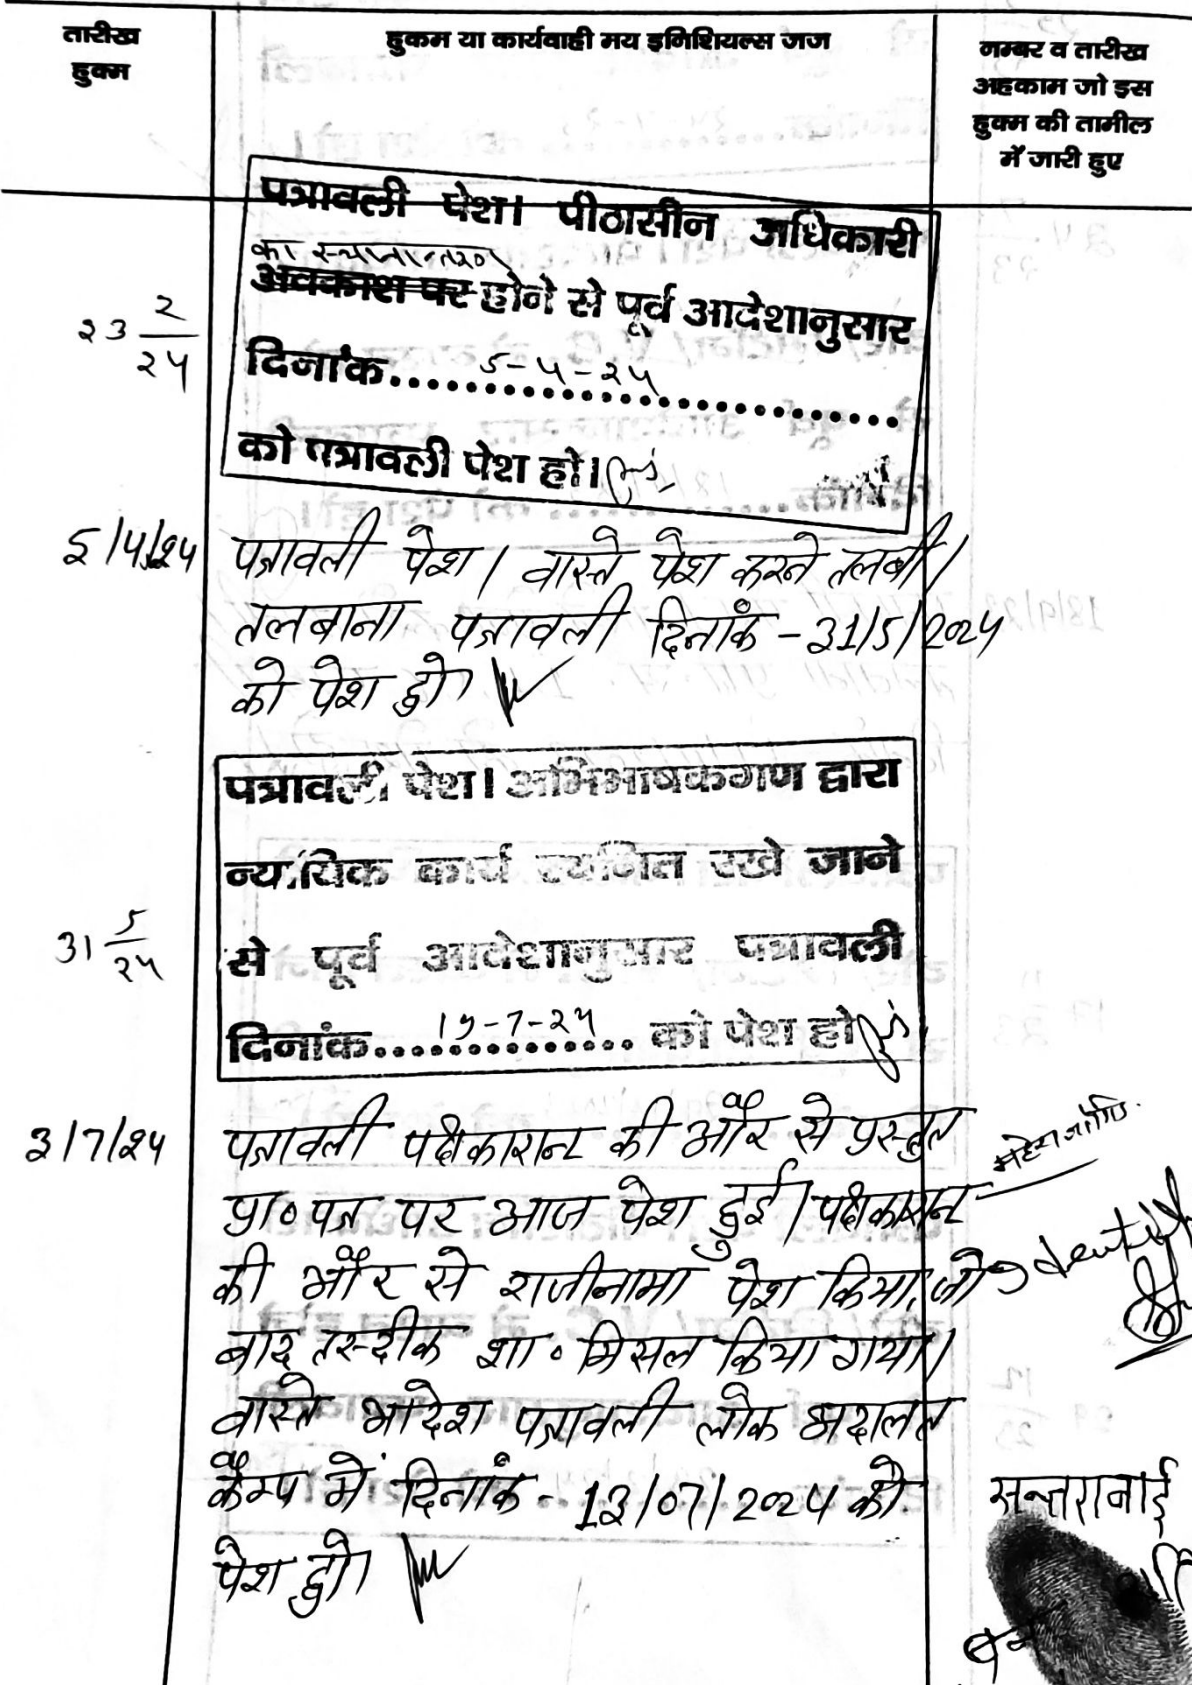 तारीख
हुक्म
हुकम या कार्यवाही मय इनिशियल्स जज
नम्बर व तारीख
अहकाम जो इस
हुक्म की तामील
में जारी हुए
23 2/24
पत्रावली पेश। पीठासीन अधिकारी
का स्थानान्तरण
अवकाश पर होने से पूर्व आदेशानुसार
दिनांक.....5-4-24.....
को पत्रावली पेश हो।
5/4/24
पत्रावली पेश। वास्ते पेश करने तलबी/
तलबाना पत्रावली दिनांक - 31/5/2024
को पेश हो।
31 5/24
पत्रावली पेश। अभिभाषकगण द्वारा
न्यायिक कार्य स्थगित रखे जाने
से पूर्व आदेशानुसार पत्रावली
दिनांक..........-7-24.......... को पेश हो
3/7/24
पत्रावली पक्षकारान की और से प्रस्तुत
प्रा० पत्र पर आज पेश हुई। पक्षकारान
की और से राजीनामा पेश किया, जो
बाद तस्दीक शा० मिसल किया गया।
वास्ते आदेश पत्रावली लोक अदालत
कैम्प में दिनांक - 13/07/2024 को
पेश हो।
सन्तराबाई